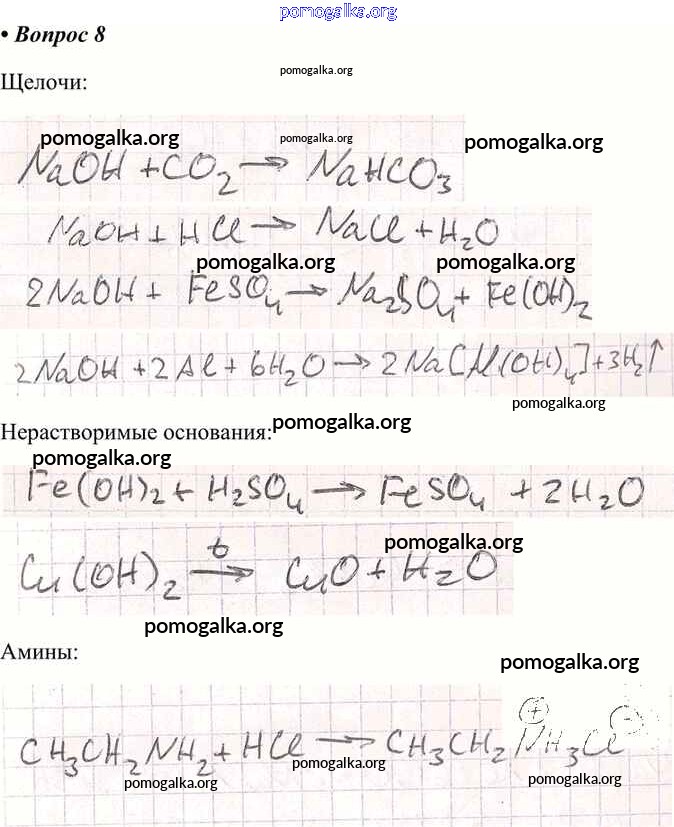 pomogalka.org
• Вопрос 8
pomogalka.org
Щелочи:
pomogalka.org pomogalka.org pomogalka.org
NaOH + CO2 → NaHCO3
NaOH + HCl → NaCl + H2O
pomogalka.org pomogalka.org
2NaOH + FeSO4 → Na2SO4 + Fe(OH)2
2NaOH + 2Al + 6H2O → 2Na[Al(OH)4] + 3H2↑
pomogalka.org
pomogalka.org
Нерастворимые основания:
pomogalka.org
Fe(OH)2 + H2SO4 → FeSO4 + 2H2O
pomogalka.org
Cu(OH)2 t→ CuO + H2O
pomogalka.org
Амины:
pomogalka.org
CH3CH2NH2 + HCl → CH3CH2NH3⊕Cl⊖
pomogalka.org
pomogalka.org pomogalka.org